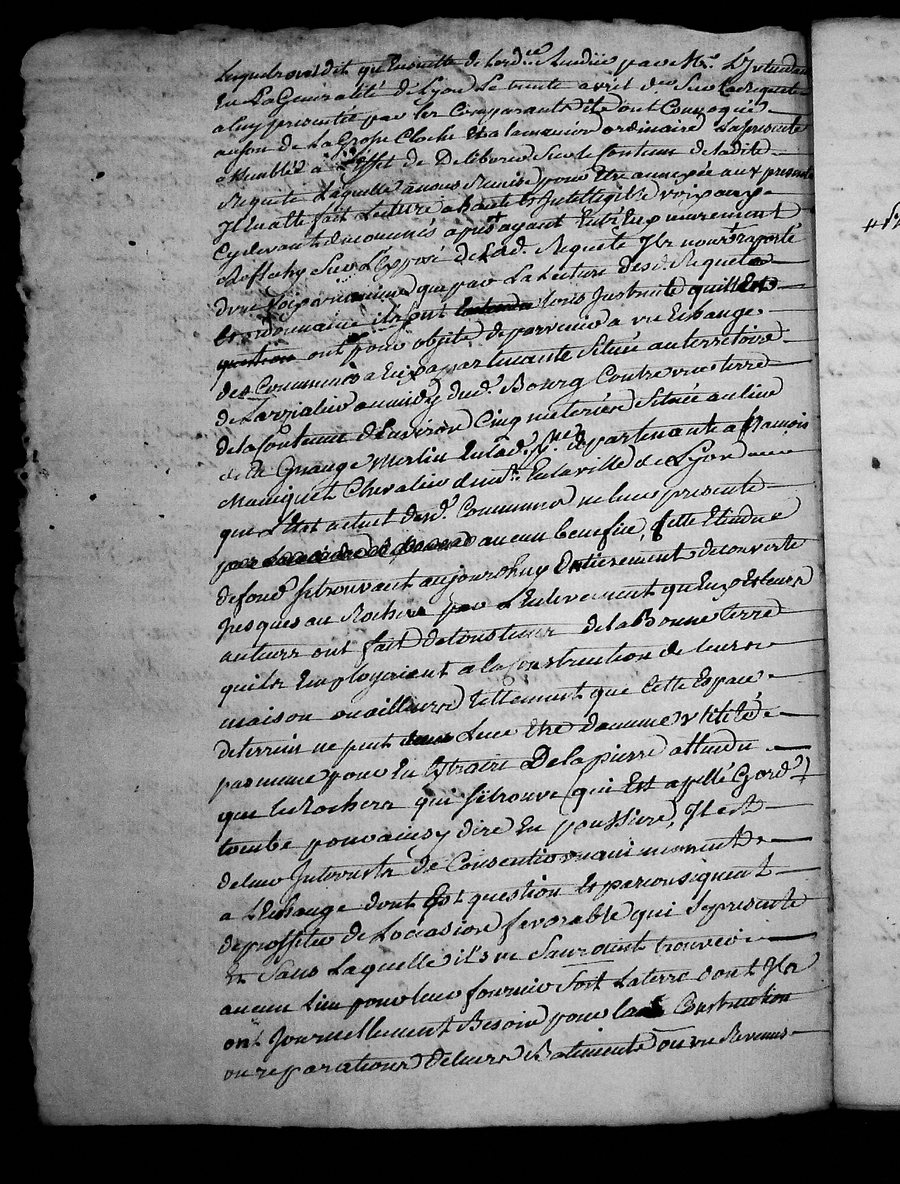 Lesquels ont dit qu'Ensuitte de Lord.ce Rendüe par Mr. L'Intendant
En La Généralité de Lyon Le trente avril d.er Sur La Requete
a luy presentée par les Comparants ils ont Convoqué
au son de La Grosse Cloche Et a la maniere ordinaire La presente
assemblée a L'effet de Deliberer Sur le Contenu de ladite
Requete Laquelle a nous Remise pour Etre annexée aux presentes
Il En a été fait Lecture a haute Et Intelligible voix aux
Cydevant denommés apres ayant Entr'Eux murement
Reflechy Sur L'Exposé de Lad. Requete Ils nous ont raporté
d'vne voix vnanime que par La Lecture des d. Requete
Et ordonnance ils sont tous Instruits qu'il Est
question ont pour objet de parvenir a vn Echange
des Communes a Eux appartenante Située au territoire
de au midy dud. Bourg Contre vne terre
de la Contenue d'Environ Cinq meterées Située au lieu
de la Grange Merlin En lad. appartenante a François
Maniquet Chevalier En la ville de Lyon
que L'Etat actuel des d. Communes ne leur presente
par aucun benefice, Cette Etendue
de fond se trouvant aujourdhuy Entierement decouverte
Jusques au Rocher par L'Enlevement qu'Eux Et leurs
auteurs ont fait de tous tems de la Bonne terre
qu'ils Employaient a la Construction de leurs
maison ou ailleurs tellement que Cette Espace
de terrein ne peut Leur Etre d'aucune vtilité
pas meme pour En Extraire De la pierre attendu
que le Rocher qui s'y trouve (qui Est apellé Gord)
tombe pour ainsy dire En poussiere, Il est
de leur Interrest de Consentir
a L'Echange dont Est question Et par consequent
de proffiter de L'occasion favorable qui Se presente
Et Sans Laquelle ils ne Sauroient trouver
aucun Lieu pour leur fournir Soit La terre dont Ils
ont Journellement Besoin pour la Construction
ou reparations de leurs Batiments ou vn Revenus